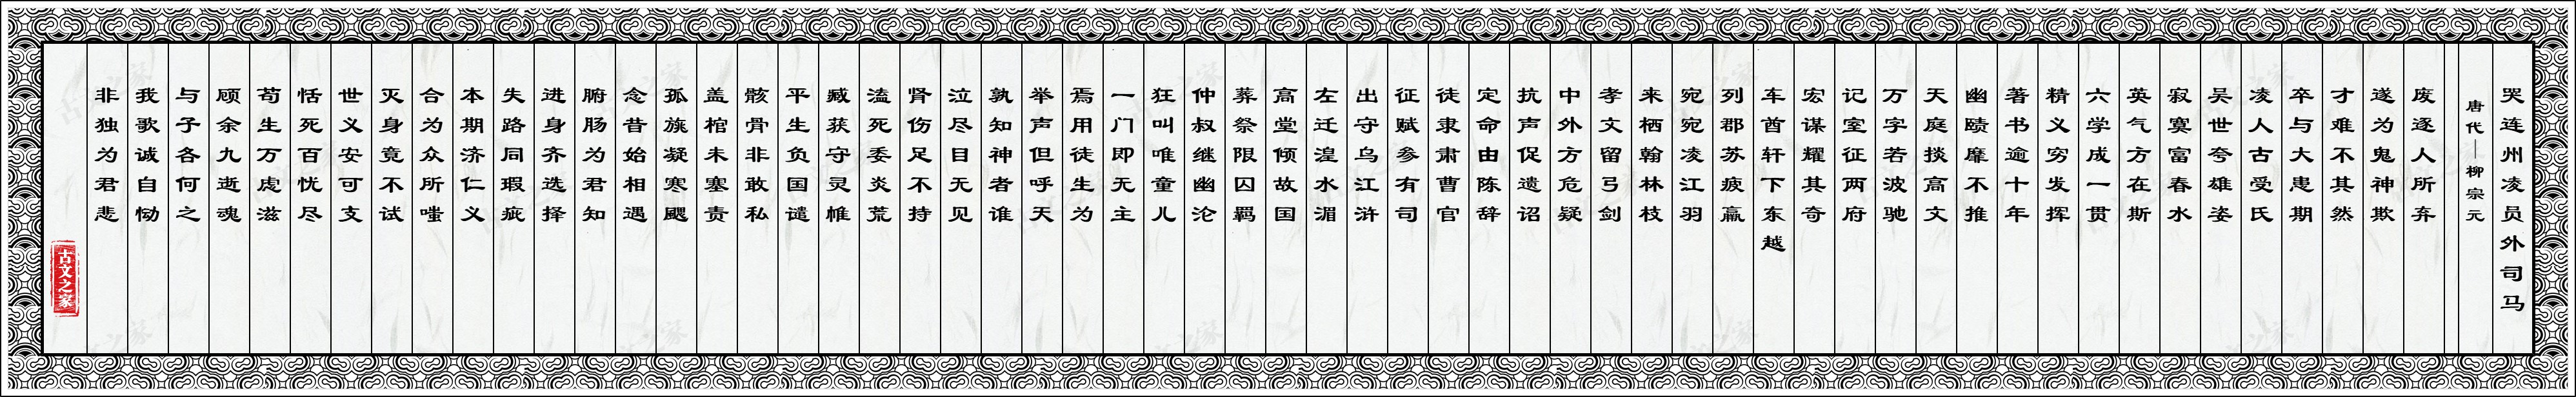 哭连州凌员外司马
唐代—柳宗元
废逐人所弃
遂为鬼神欺
才难不其然
卒与大患期
凌人古受氏
吴世夸雄姿
寂寞富春水
英气方在斯
六学成一贯
精义穷发挥
著书逾十年
幽赜靡不推
天庭掞高文
万字若波驰
记室征两府
宏谋耀其奇
车酋轩下东越
列郡苏疲羸
宛宛凌江羽
来栖翰林枝
孝文留弓剑
中外方危疑
抗声促遗诏
定命由陈辞
徒隶肃曹官
征赋参有司
出守乌江浒
左迁湟水湄
高堂倾故国
葬祭限囚羁
仲叔继幽沦
狂叫唯童儿
一门即无主
焉用徒生为
举声但呼天
孰知神者谁
泣尽目无见
肾伤足不持
溘死委炎荒
臧获守灵帷
平生负国谴
骸骨非敢私
盖棺未塞责
孤旐凝寒飔
念昔始相遇
腑肠为君知
进身齐选择
失路同瑕疵
本期济仁义
合为众所嗤
灭身竟不试
世义安可支
恬死百忧尽
苟生万虑滋
顾余九逝魂
与子各何之
我歌诚自恸
非独为君悲
古文之家